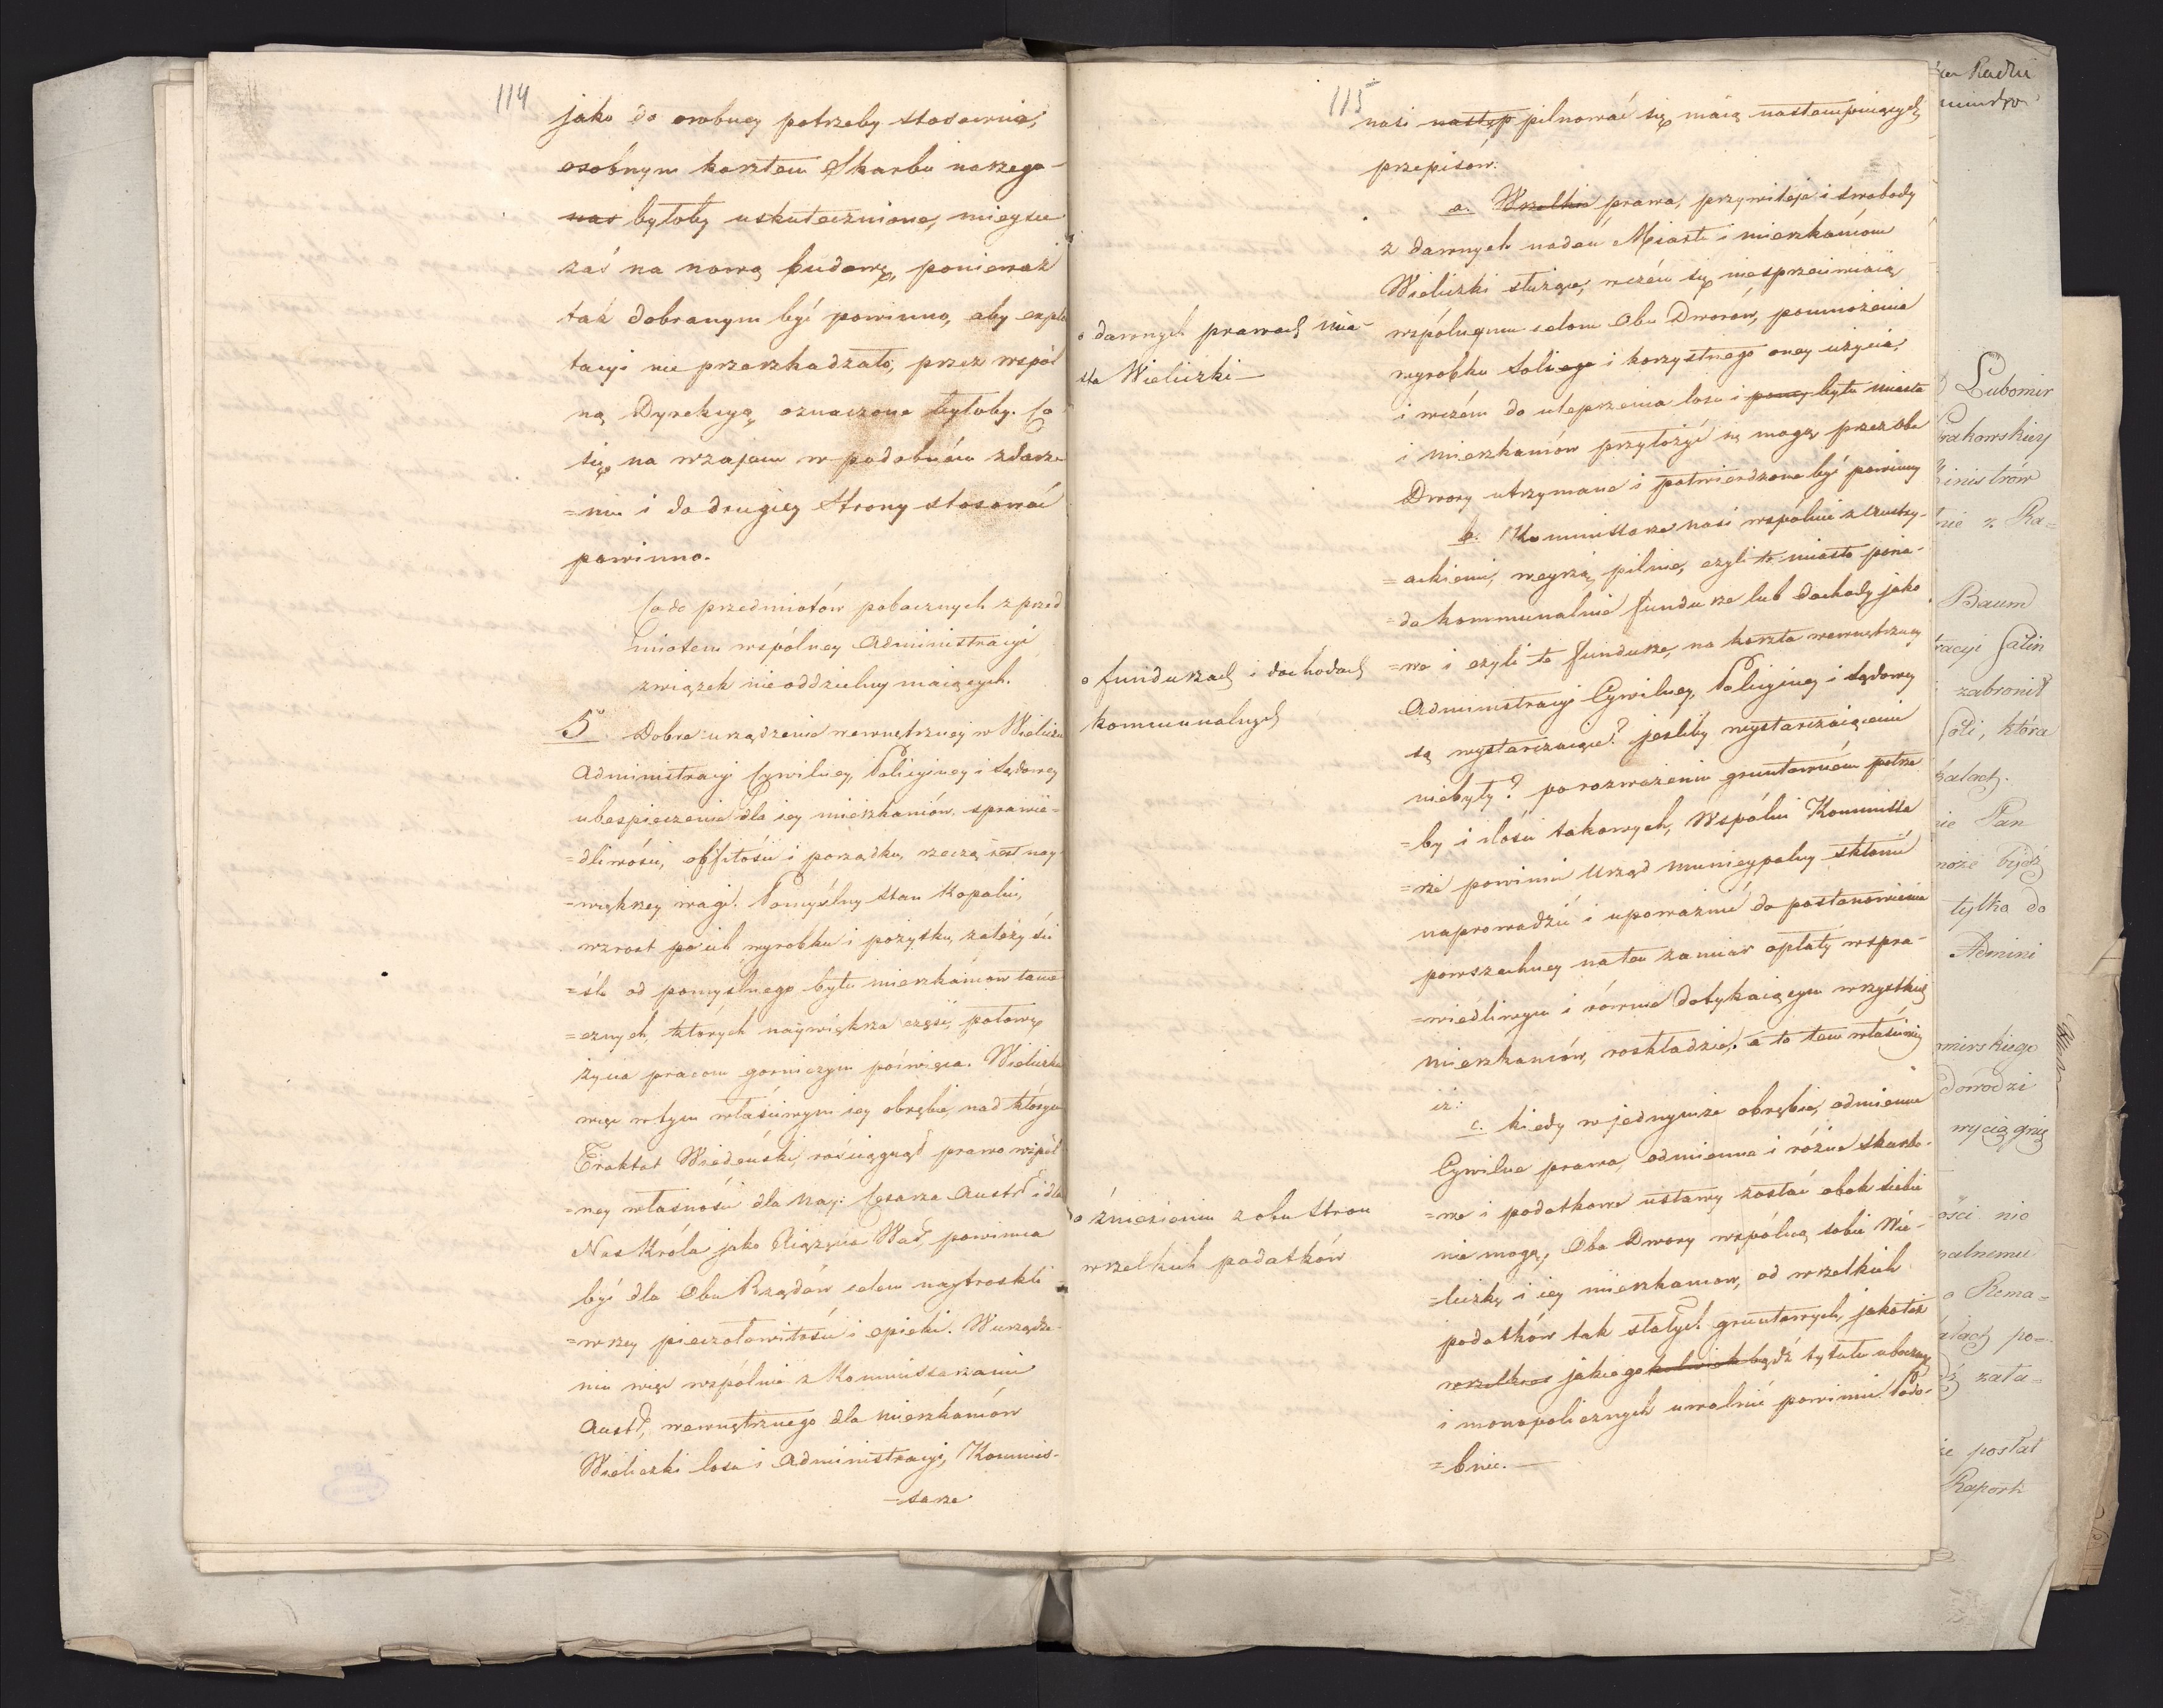 114
jako do osobney potrzeby stosownie,
osobnym kosztem Skarbu naszego
nas byłoby uskutecznione, mieysce
zaś na nową budowę, ponieważ
też dobranym być powinno, aby explo
tacyi nie przeszkadzało, przez wspól
ną Dyrekcyą oznaczone byłoby. Co
się na wzajem w podobném zdarze
=niu i do drugiey Strony stosować
powinno.
Co do przedmiotów pobocznych z przed
miotem wspólney Administracyi
związek nieoddzielny maiących.
5º. Dobre urządzenie wewnętrzney w Wieliczce
Administracyi Cywilney, Policyiney i Sądowey
ubespieczenie dla iey mieszkańców sprawie=
=dliwości, obfitości i porządku, rzeczą iest nay
=większey wagi. Pomyślny stan Kopalni,
wzrost po ich wyrobku i pożytku, zależy ści
=śle od pomyślnego bytu mieszkańców tame
=cznych, których naywiększa część, połowę
życia pracom gorniczym poświęca. Wieliczka
więc w tym właściwym iey obrębie, nad którym
Traktat Wiedeński, rościągnął prawo wspól
=ney własności dla Nay: Cesarza Austr. i dla
Nas Króla jako Xiążęcia War., powinna
być dla Obu Rządów celem naytroskli
=wszey pieczołowitości i opieki. W urządze-
niu więc wspólnie z Kommissarzami
Austr., wewnętrznego dla mieszkańców
Wieliczki losu i Administracyi, Kommis-
-sarze
115
nasi następ pilnować się maią nastempuiących
przepisów:
a. Wszelkie prawa, przywileje i swobody
z dawnych nadań Miastu i mieszkańcom
Wieliczki służące, wczém się niesprzeciwiaią
wspólnym celom Obu Dworów, pomnożenia
wyrobku Solnego i korzystnego oney użycia,
i wczém do ulepszenia losu i bytu miasta
i mieszkańców przyłożyć się mogą przez Oba
Dwory utrzymane i potwierdzone być powinny
b. Kommissarze nasi wspólnie z Austry-
=ackiemi, weyrzą pilnie, czyli to miasto posia-
=da kommunalne fundusze lub dochody jako
=we i czyli te fundusze, na koszta wewnętrzney
Administracyi Cywilney, Policyiney i Sądowey
są wystarczaiące? jeśliby wystarczaiącemi
niebyły? po rozważeniu gruntowném potrze
=by i ilości takowych, Wspólni Kommissa
=rze powinni Urząd municypalny skłonić
naprowadzić i upoważnić do postanowienia
powszechney na ten zamiar opłaty w spra-
=wiedliwym i równie dotykaiącym wszystkich
mieszkańców, rozkładzie. a to tem właściwiey
iż:
c. kiedy w jednymże obrębie, odmienne
Cywilne prawa, odmienne i różne skarbo-
=we i podatkowe ustawy zostać obok siebie
nie mogą, Oba Dwory wspólną sobie Wie-
=liczkę i iey mieszkańców, od wszelkich
podatków tak stałych gruntowych, jakoteż
wszelkies jakiegokolwiek bądź tytułu ubocznych
i monopolicznych uwolnić powinni Podo-
=bnie. —
o dawnych prawach mia-
sta Wieliczki —
o funduszach i dochodach
kommunalnych
o zniesieniu z obu Stron
wszelkich podatków
Radzi
Lubomir
Krakowskiey
inistrów
nie z Ra=
Baum
racyi Salin
i zabronił
Soli, która
nie Pan
może bydź
tylko do
Admini
mirskiego
dowodzi
wyciągnię
ości nie
palnemu
o Rema=
po=
zata=
posłał
Raport